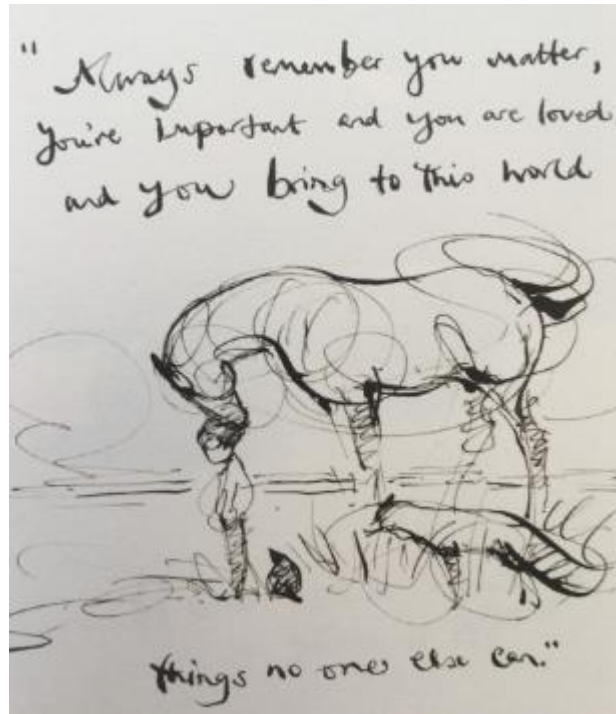 "Always remember you matter,
you're important and you are loved
and you bring to this world
things no one else can."